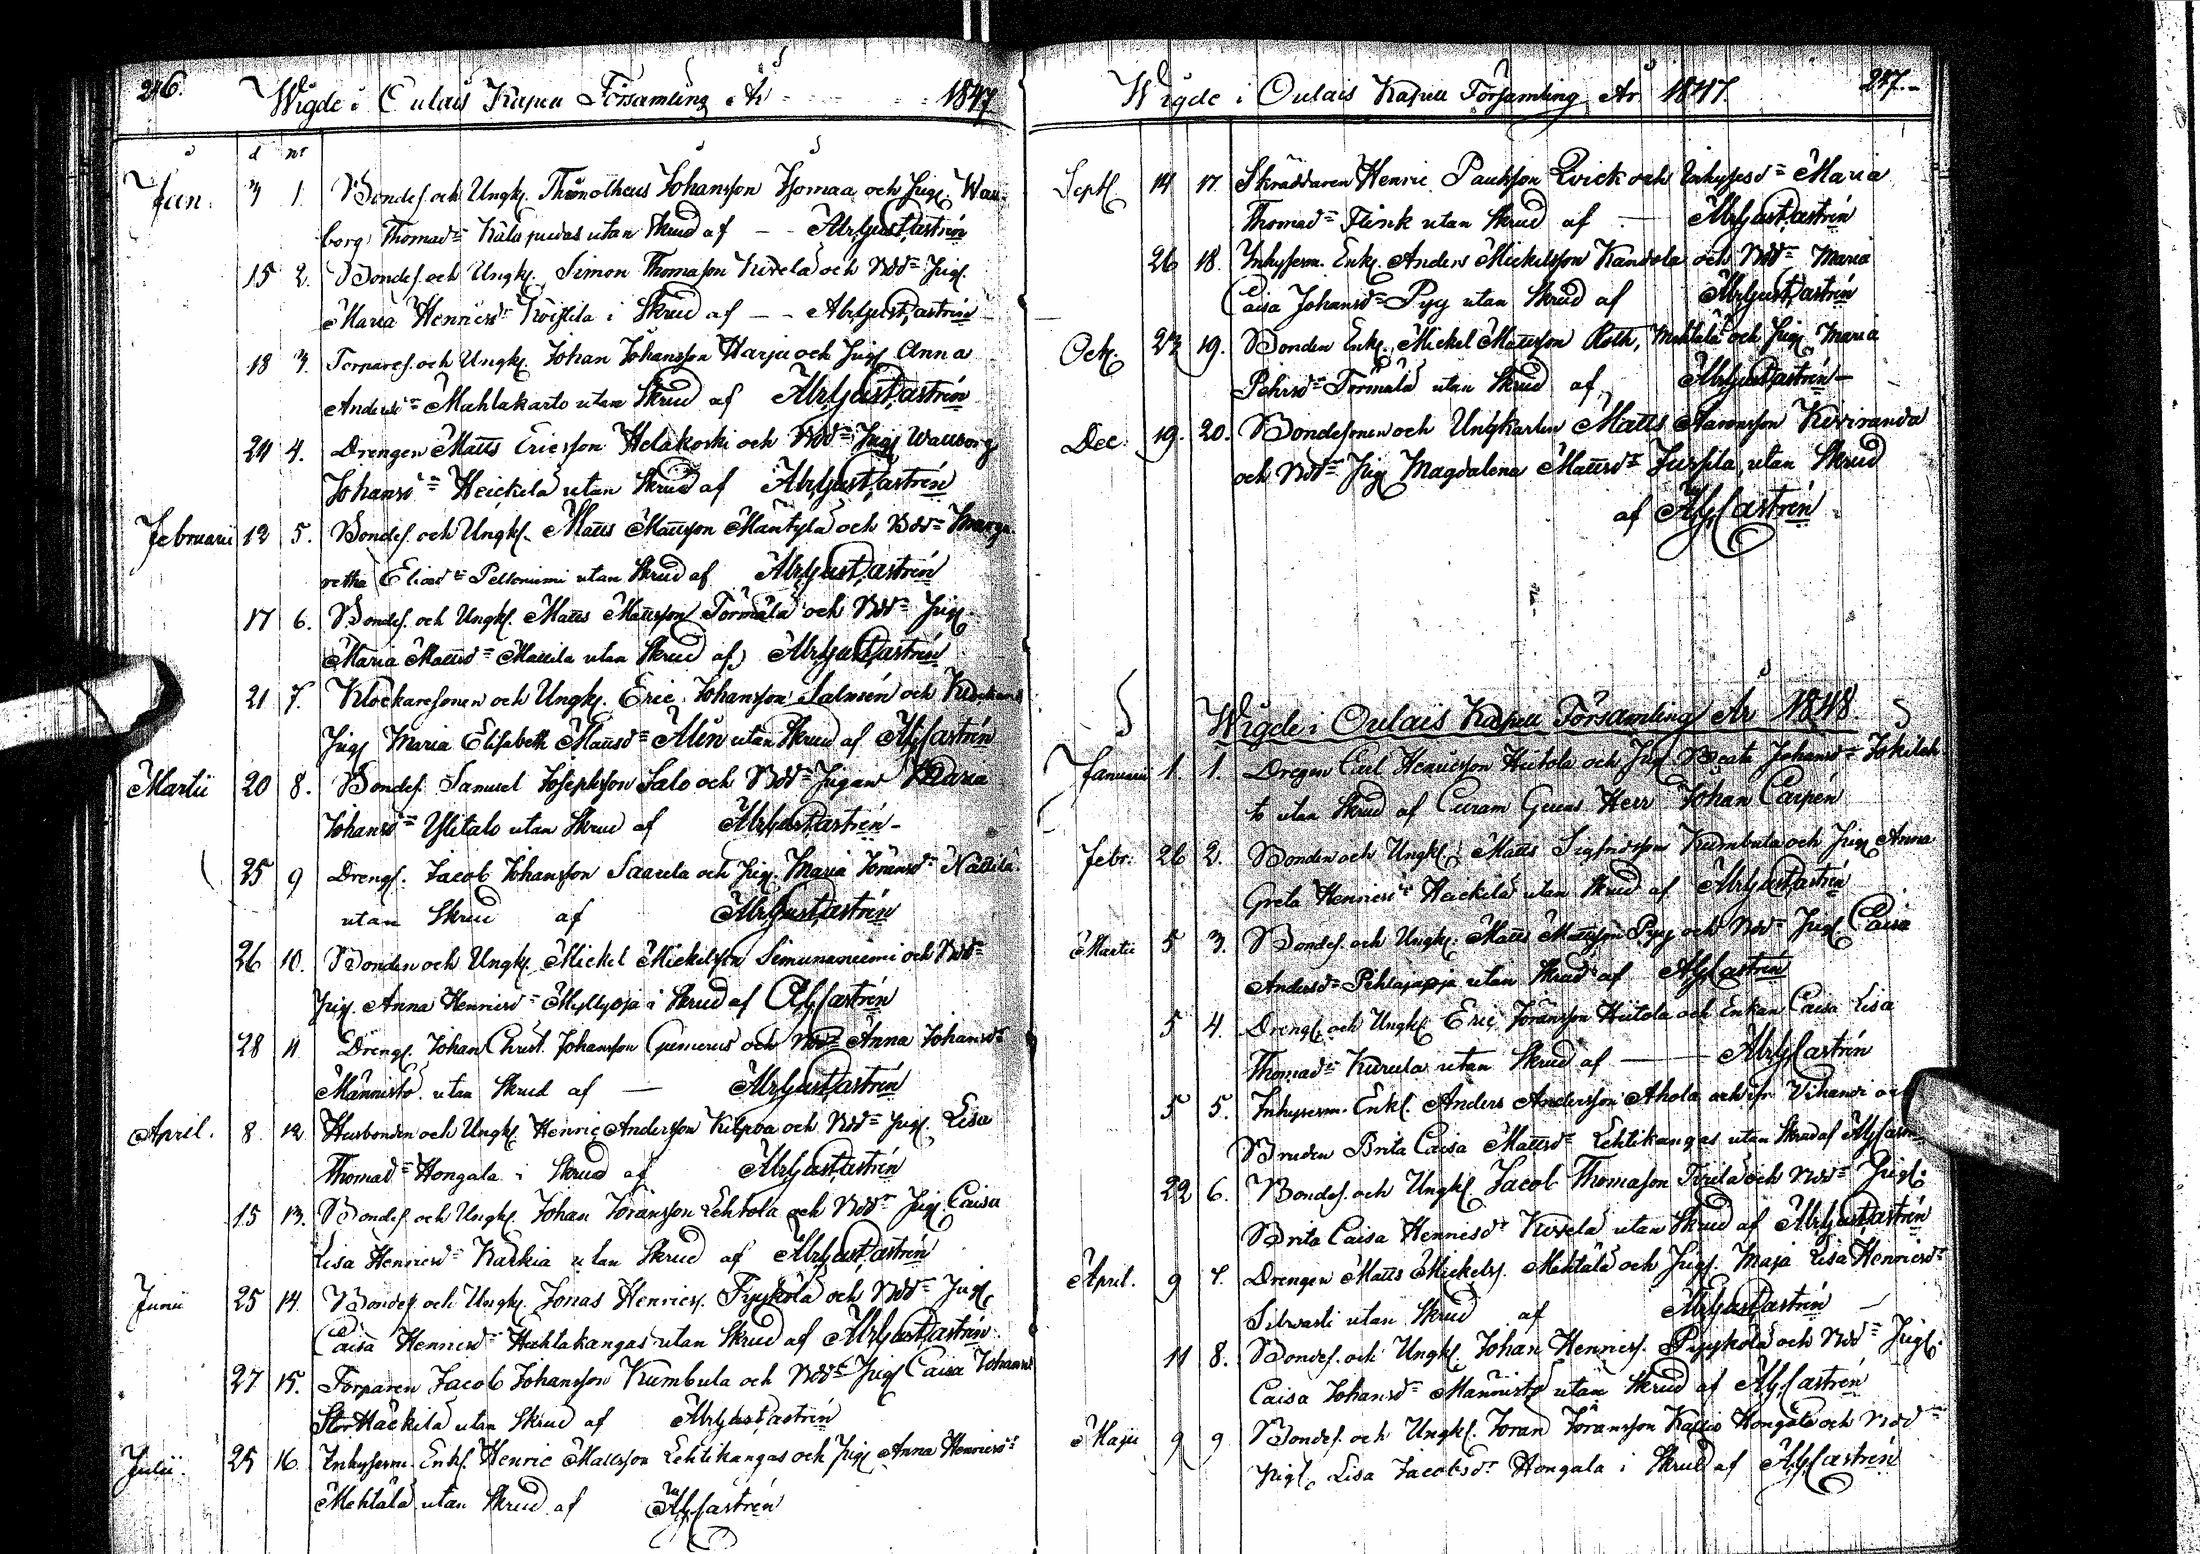 246.
Wigde i Oulais Kapell Församling År 1847
d nr
Jan. 3 1. Bondes. och Ungk. Thimotheus Johansson Isomaa och Jugf. Wau-
borg Thomasd:r utan Skrud af Abr. Gust. Castrén
15 2. Bondes. och Ungk. Simon Thomasson Kivelä och Bdd:r Jugf.
Maria Henricsd:r Koistila i Skrud af Abr. Gust. Castrén
18 3. Torpares. och Ungk. Johan Johansson Harju och Jugf Anna
Andersd:r Mahlakarto utan Skrud af Abr. Gust. Castrén
24 4. Drengen Matts Ericsson Helakoski och Bdd:r Jugf Wallborg
Johansd:r Heickilä utan Skrud af Abr. Gust. Castrén
Februarii 12 5. Bondes. och Ungk. Matts Mattsson Mäntylä och Bdd:r Marga-
retha Eliasd:r Peltoniemi utan Skrud af Abr. Gust. Castrén
17 6. Bondes. och Ungk. Matts Mattsson Törmälä och Bdd:r Jugf.
Maria Mattsd:r Mattila utan Skrud af Abr. Gust. Castrén
21 7. Klockaresonen och Ungk. Eric Johansson Salmén och
Jugf Maria Elisabeth Mattsd:r Alén utan Skrud af A.G. Castrén
Martii 20 8. Bondes. Samuel Josephsson Salo och Bdd:r Jugan Maria
Johansd:r Ylitalo utan Skrud af Abr. Gust. Castrén
25 9 Drengs. Jacob Johansson Saarela och Jugf. Maria Jöransd:r Nättilä
utan Skrud af Abr. Gust. Castrén
26 10. Bonden och Ungk. Mickel Mickelsson Simunaniemi och Bdd:r
Jugf. Anna Henricsd:r Myllyoja i Skrud af A.G. Castrén
28 11 Drengs. Johan Christ. Johansson Gumerus och Bdd:r Anna Johansd:r
Männistö utan Skrud af Abr. Gust. Castrén
April. 8. 12. Husbonden och Ungk. Henric Andersson Kilpua och Bdd:r Jugf. Lisa
Thomasd:r Hongala i Skrud af Abr. Gust. Castrén
15 13. Bondes. och Ungk. Johan Jöransson Lehtola och Bdd:r Jugf Caisa
Lisa Henricsd:r Karkia utan Skrud af Abr. Gust. Castrén
Junii 25 14. Bondes. och Ungk. Jonas Henrics. Pyykölä och Bdd:r Jugf.
Caisa Henricsd:r Huhtakangas utan Skrud af Abr. Gust. Castrén
27 15. Torparen Jacob Johansson Kumbula och Bdd:r Jugf Caisa Johansd
StorHäckilä utan Skrud af Abr. Gust. Castrén
Julii. 25 16. Inhysesm. Enkl. Henric Mattsson Lehtikangas och Jugf Anna Henricsd:r
Mehtälä utan Skrud af A.G. Castrén
Wigde i Oulais Kapell Församling År 1847. 247.
Sept 14 17. Skräddaren Henric Paulsson Qvick och Inhysesd:r Maria
Thomasd:r Flink utan Skrud af Abr. Gust. Castrén
26 18. Inhysesm. Enkl. Anders Mickelsson Kandola och Bdd:r Maria
Caisa Johansd:r Pyy utan Skrud af Abr. Gust. Castrén
Oct. 23 19. Bonden Enkl. Mickel Mattsson Roth, Mehtälä och Jugf. Maria
Pehrsd:r Törmälä utan Skrud af Abr. Gust. Castrén
Dec. 19. 20. Bondesonen och Ungkarlen Matts Aaronsson Kiviranda
och Bdd:r Jugf Magdalena Mattsd:r Jussila utan Skrud
af A.G. Castrén
Wigde i Oulais Kapell Församling År 1848.
Januarii 1. 1. Drengen Carl Henricsson Hietola och Jugf Beata Johansd:r Jokileh-
to utan Skrud af Curam Gerens Herr Johan Carpén
Febr. 26 2. Bonden och Ungk. Matts Sigfridsson Kumbula och Jugf Anna
Greta Henricsd:r Heickilä utan Skrud af Abr. Gust. Castrén
Martii 5 3. Bondes. och Ungk. Matts Mattsson Pyy och Bdd:r Jugf. Caisa
Andersd:r Pihlajaoja utan Skrud af A.G. Castrén
5 4. Drengs. och Ungk. Eric Jöransson Hietola och Enkan Caisa Lisa
Thomasd:r Kurula utan Skrud af Abr. G. Castrén
5 5. Inhysesm. Enkl. Anders Andersson Ahola ifr. Vihandi och
Bruden Brita Caisa Mattsd:r Lehtikangas utan Skrud af A.G. Castrén
22 6. Bondes. och Ungk. Jacob Thomasson och Bdd:r Jugf.
Brita Caisa Henricsd:r Kivelä utan Skrud af Abr. Gust. Castrén
April. 9 7. Drengen Matts Mickels. Mehtälä och Jugf. Maja Lisa Henricsd:r
Silvasti utan Skrud af Abr. Gust. Castrén
11 8. Bondes. och Ungk. Johan Henrics. Pyykölä och Bdd:r Jugf.
Caisa Johansd:r Männistö utan Skrud af A.G. Castrén
Maji 9 9 Bondes. och Ungk. Jöran Jöransson Kallio Hongala och Bdd:r
Jugf. Lisa Jacobsd:r Hongala i Skrud af A.G. Castrén